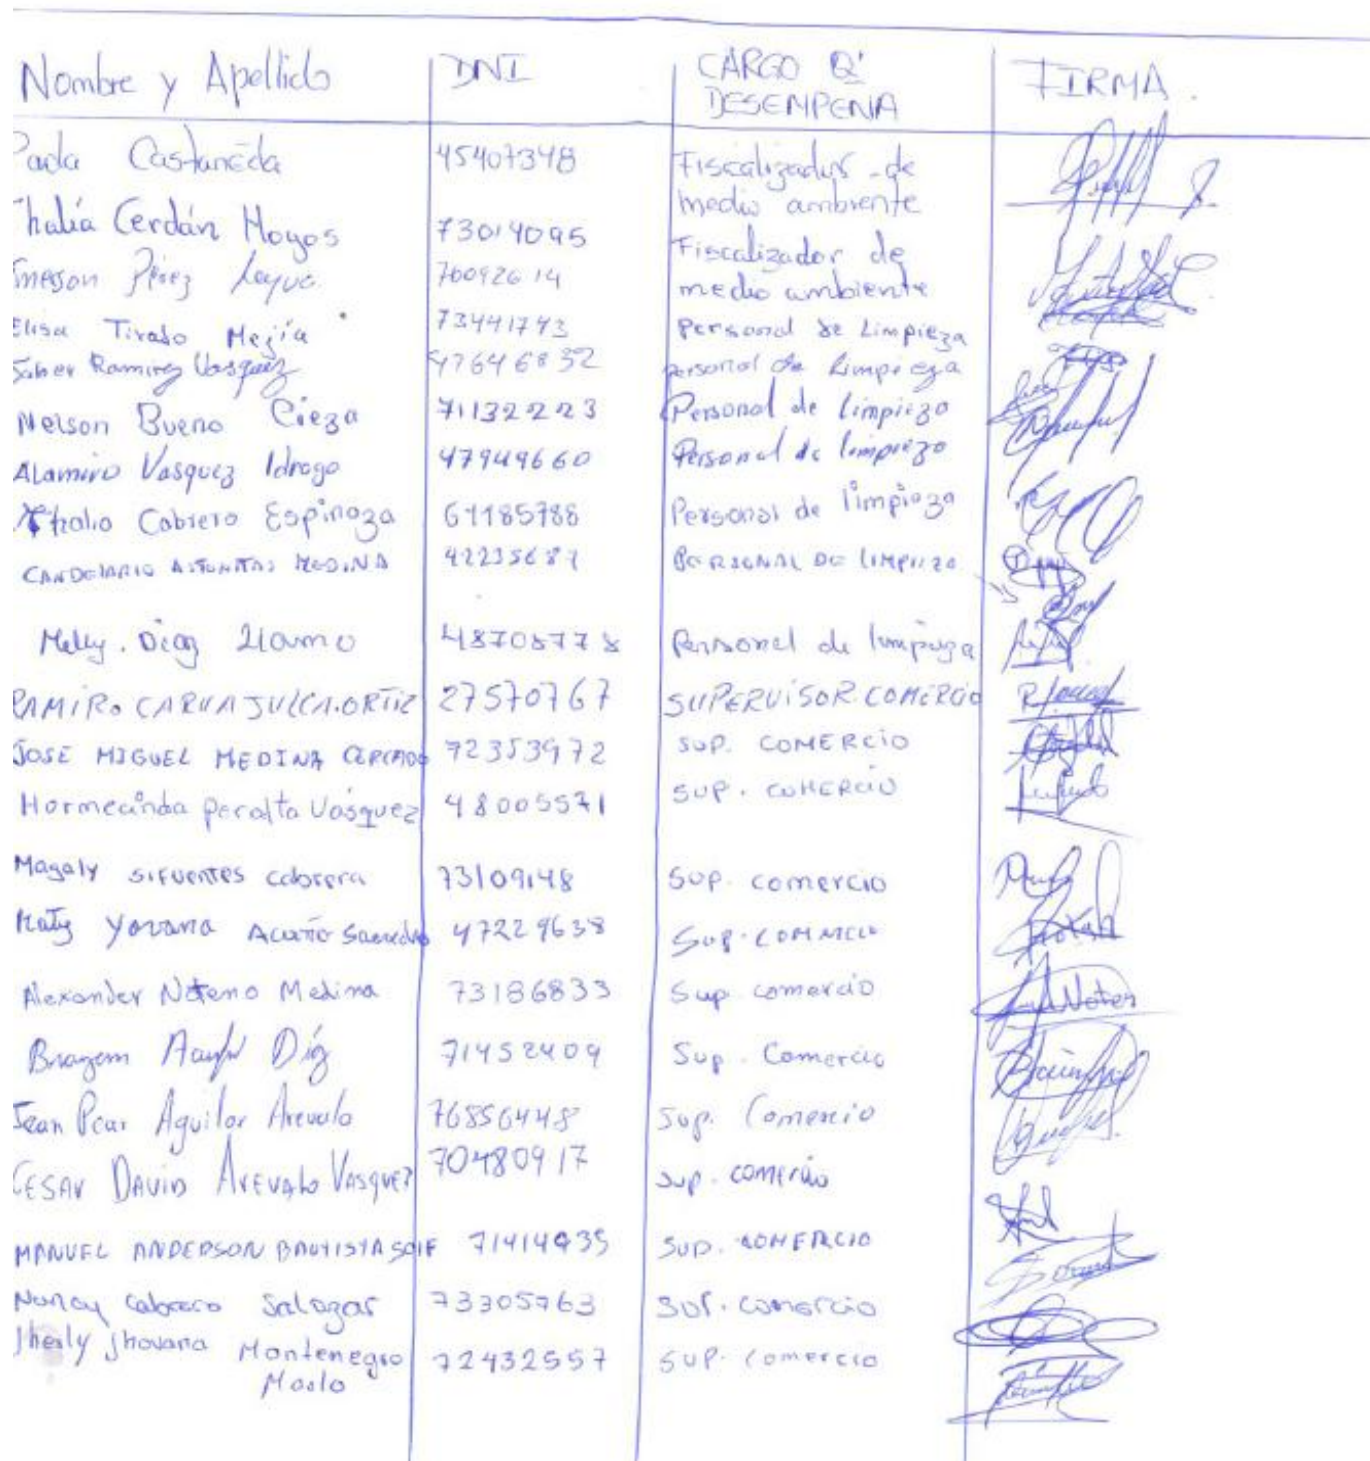 Nombre y Apellido DNI CARGO Q' DESEMPEÑA FIRMA.
Castañeda 45407348 Fiscalizador de
medio ambiente
halia Cerdán Hoyos 73014095 Fiscalizador de
medio ambiente
Pérez Leyva 70092614
Elisa Tirado Mejía 73441743 Personal de Limpieza
Ramirez Vasquez 47646832 personal de Limpieza
Nelson Bueno Cieza 71132223 Personal de limpieza
Alamiro Vasquez Idrogo 47949660 Personal de limpieza
Cabrera Espinoza 61185788 Personal de limpieza
CANDELARIO MEDINA PERSONAL DE LIMPIEZA
Nelly. Diaz 48708778 Personal de limpieza
RAMIRO CARUAJULCA.ORTIZ 27570767 SUPERVISOR COMERCIO
JOSE MIGUEL MEDINA CERCADO 72353972 SUP. COMERCIO
Hormecinda peralta Vásquez 48005571 SUP. COMERCIO
Magaly SIFUENTES cabrera 73109148 SUP. comercio
Katy Yovana 47229638 Sup. comercio
Alexander Medina 73186833 Sup. comercio
Díaz 71452409 Sup. Comercio
Jean Aguilar Arevalo 76856448 Sup. Comercio
CESAR DAVID AREVALO VASQUEZ 70480917 sup. comercio
MANUEL ANDERSON BAUTISTA SUP. COMERCIO
Nancy cabrera Salazar 73305763 SUP. comercio
jhovana Montenegro 72432557 SUP. comercio